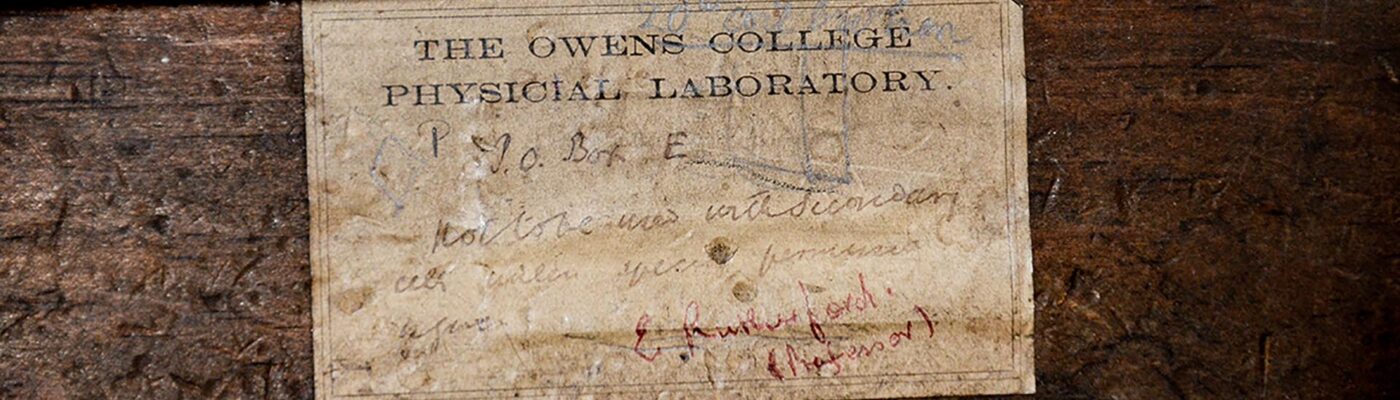 THE OWENS COLLEGE
PHYSICIAL LABORATORY.
P P.O. Box E
Not to be used with Secondary
cells unless special permission
E Rutherford.
(Professor)